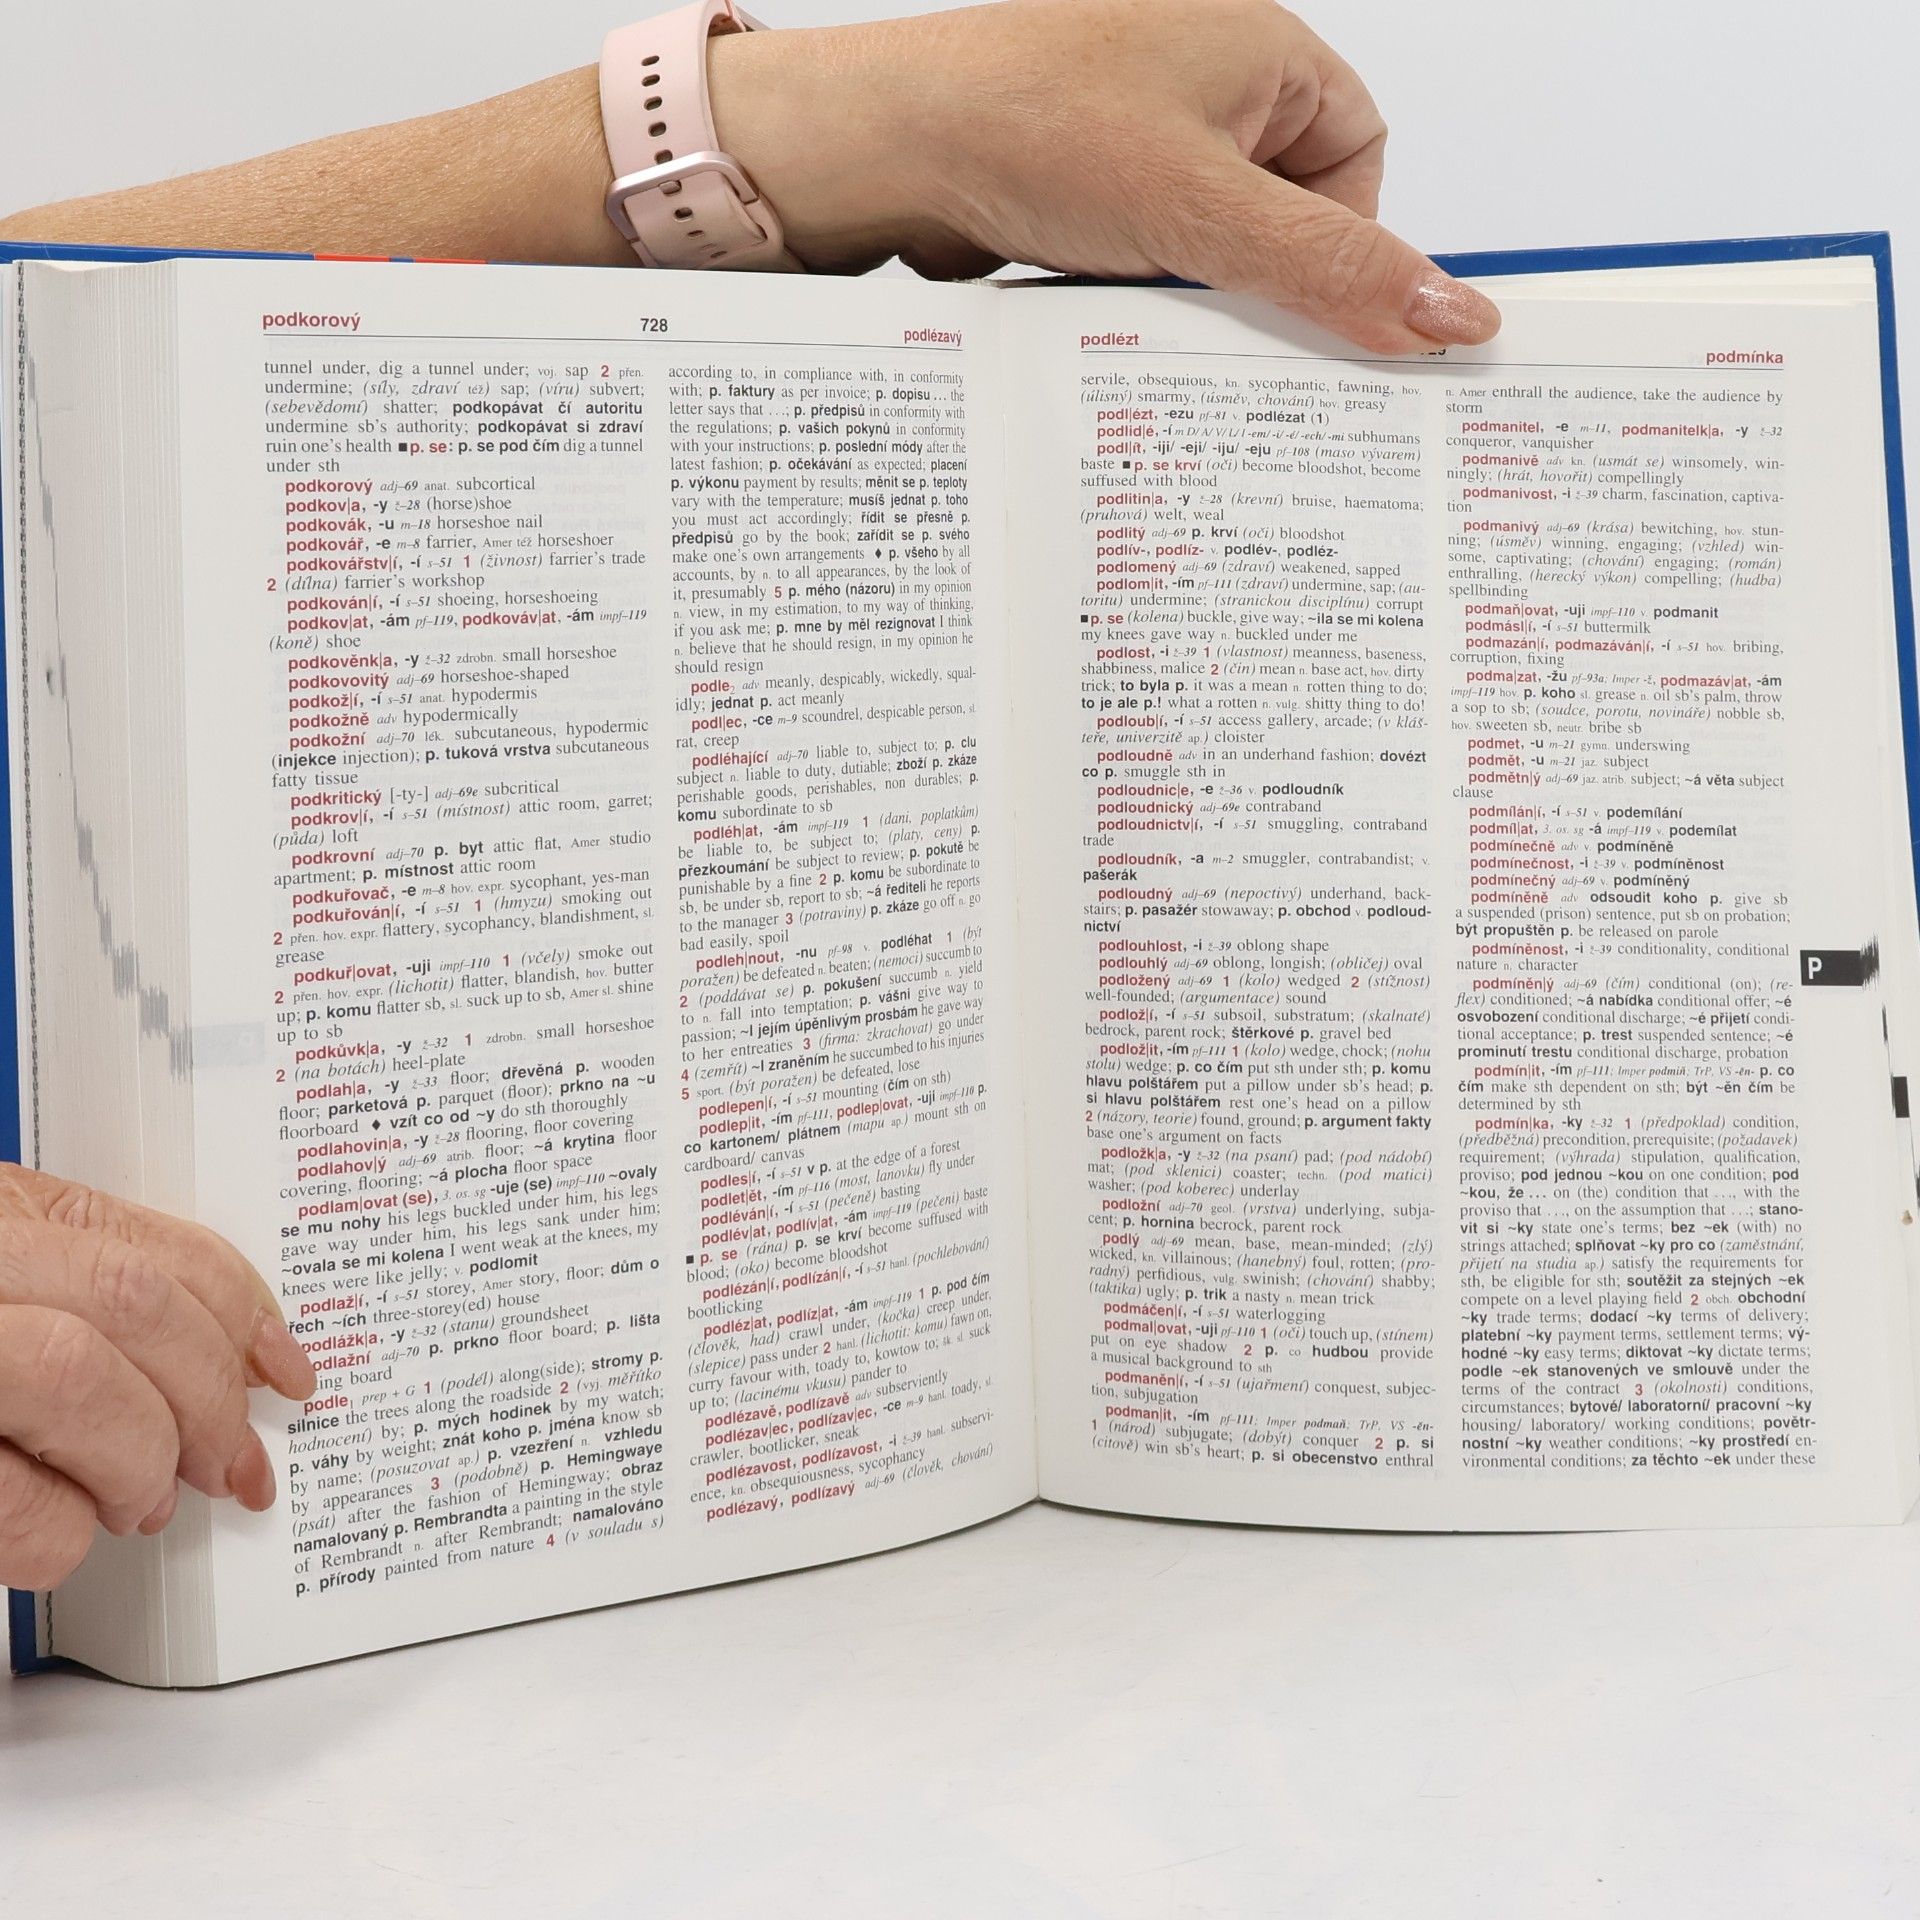 podkorový
728
podlézavý
tunnel under, dig a tunnel under; voj. sap 2 přen.
undermine; (síly, zdraví též) sap; (víru) subvert;
(sebevědomí) shatter; podkopávat čí autoritu
undermine sb's authority; podkopávat si zdraví
ruin one's health ■p. se: p. se pod čím dig a tunnel
under sth
podkorový adj–69 anat. subcortical
podkov|a, -y ž–28 (horse)shoe
podkovák, -u m–18 horseshoe nail
podkovář, -e m–8 farrier, Amer též horseshoer
podkovářstv|í, -í s–51 1 (živnost) farrier's trade
2 (dílna) farrier's workshop
podkován|í, -í s–51 shoeing, horseshoeing
podkov|at, -ám pf–119, podkováv|at, -ám impf–119
(koně) shoe
podkověnk|a, -y ž–32 zdrobn. small horseshoe
podkovovitý adj–69 horseshoe-shaped
podkož|í, -í s–51 anat. hypodermis
podkožně adv hypodermically
podkožní adj–70 lék. subcutaneous, hypodermic
(injekce injection); p. tuková vrstva subcutaneous
fatty tissue
podkritický [-ty-] adj–69e subcritical
podkrov|í, -í s–51 (místnost) attic room, garret;
(půda) loft
podkrovní adj–70 p. byt attic flat, Amer studio
apartment; p. místnost attic room
podkuřovač, -e m–8 hov. expr. sycophant, yes-man
podkuřován|í, -í s–51 1 (hmyzu) smoking out
2 přen. hov. expr. flattery, sycophancy, blandishment, sl.
grease
podkuř|ovat, -uji impf–110 1 (včely) smoke out
2 přen. hov. expr. (lichotit) flatter, blandish, hov. butter
up; p. komu flatter sb, sl. suck up to sb, Amer sl. shine
up to sb
podkůvk|a, -y ž–32 1 zdrobn. small horseshoe
2 (na botách) heel-plate
podlah|a, -y ž–33 floor; dřevěná p. wooden
floor; parketová p. parquet (floor); prkno na ~u
floorboard ♦ vzít co od ~y do sth thoroughly
podlahovin|a, -y ž–28 flooring, floor covering
podlahov|ý adj–69 atrib. floor; ~á krytina floor
covering, flooring; ~á plocha floor space
podlam|ovat (se), 3. os. sg -uje (se) impf–110 ~ovaly
se mu nohy his legs buckled under him, his legs
gave way under him, his legs sank under him;
~ovala se mi kolena I went weak at the knees, my
knees were like jelly; v. podlomit
podlaž|í, -í s–51 storey, Amer story, floor; dům o
řech ~ích three-storey(ed) house
podlážk|a, -y ž–32 (stanu) groundsheet
odlažní adj–70 p. prkno floor board; p. lišta
ing board
podle1 prep + G 1 (podél) along(side); stromy p.
silnice the trees along the roadside 2 (vyj. měřítko
hodnocení) by; p. mých hodinek by my watch;
p. váhy by weight; znát koho p. jména know sb
by name; (posuzovat ap.) p. vzezření n. vzhledu
by appearances 3 (podobně) p. Hemingwaye
(psát) after the fashion of Hemingway; obraz
namalovaný p. Rembrandta a painting in the style
of Rembrandt n. after Rembrandt; namalováno
p. přírody painted from nature 4 (v souladu s)
according to, in compliance with, in conformity
with; p. faktury as per invoice; p. dopisu ... the
letter says that ...; p. předpisů in conformity with
the regulations; p. vašich pokynů in conformity
with your instructions; p. poslední módy after the
latest fashion; p. očekávání as expected; placení
p. výkonu payment by results; měnit se p. teploty
vary with the temperature; musíš jednat p. toho
you must act accordingly; řídit se přesně p.
předpisů go by the book; zařídit se p. svého
make one's own arrangements ♦ p. všeho by all
accounts, by n. to all appearances, by the look of
it, presumably 5 p. mého (názoru) in my opinion
n. view, in my estimation, to my way of thinking,
if you ask me; p. mne by měl rezignovat I think
n. believe that he should resign, in my opinion he
should resign
podle2 adv meanly, despicably, wickedly, squal-
idly; jednat p. act meanly
podl|ec, -ce m–9 scoundrel, despicable person, sl.
rat, creep
podléhající adj–70 liable to, subject to; p. clu
subject n. liable to duty, dutiable; zboží p. zkáze
perishable goods, perishables, non durables; p.
komu subordinate to sb
podléh|at, -ám impf–119 1 (dani, poplatkům)
be liable to, be subject to; (platy, ceny) p.
přezkoumání be subject to review; p. pokutě be
punishable by a fine 2 p. komu be subordinate to
sb, be under sb, report to sb; ~á řediteli he reports
to the manager 3 (potraviny) p. zkáze go off n. go
bad easily, spoil
podleh|nout, -nu pf–98 v. podléhat 1 (být
poražen) be defeated n. beaten; (nemoci) succumb to
2 (poddávat se) p. pokušení succumb n. yield
to n. fall into temptation; p. vášni give way to
passion; ~l jejím úpěnlivým prosbám he gave way
to her entreaties 3 (firma: zkrachovat) go under
4 (zemřít) ~l zraněním he succumbed to his injuries
5 sport. (být poražen) be defeated, lose
podlepen|í, -í s–51 mounting (čím on sth)
podlep|it, -ím pf–111, podlep|ovat, -uji impf–110 p.
co kartonem/ plátnem (mapu ap.) mount sth on
cardboard/ canvas
podles|í, -í s–51 v p. at the edge of a forest
podlet|ět, -ím pf–116 (most, lanovku) fly under
podléván|í, -í s–51 (pečeně) basting
podlév|at, podlív|at, -ám impf–119 (pečeni) baste
■ p. se (rána) p. se krví become suffused with
blood; (oko) become bloodshot
podlézán|í, podlízán|í, -í s–51 hanl. (pochlebování)
bootlicking
podléz|at, podlíz|at, -ám impf–119 1 p. pod čím
(člověk, had) crawl under, (kočka) creep under,
(slepice) pass under 2 hanl. (lichotit: komu) fawn on,
curry favour with, toady to, kowtow to; šk. sl. suck
up to; (lacinému vkusu) pander to
podlézavě, podlízavě adv subserviently
podlézav|ec, podlízav|ec, -ce m–9 hanl. toady, sl.
crawler, bootlicker, sneak
podlézavost, podlízavost, -i ž–39 hanl. subservi-
ence, kn. obsequiousness, sycophancy
podlézavý, podlízavý adj–69 (člověk, chování)
podlézt
podmínka
servile, obsequious, kn. sycophantic, fawning, hov.
(úlisný) smarmy, (úsměv, chování) hov. greasy
podl|ézt, -ezu pf–81 v. podlézat (1)
podlid|é, -í m D/A/V/L/I -em/-i/-é/-ech/-mi subhumans
podl|ít, -iji/ -eji/ -iju/ -eju pf–108 (maso vývarem)
baste ■p. se krví (oči) become bloodshot, become
suffused with blood
podlitin|a, -y ž–28 (krevní) bruise, haematoma;
(pruhová) welt, weal
podlitý adj–69 p. krví (oči) bloodshot
podlív-, podlíz- v. podlév-, podléz-
podlomený adj–69 (zdraví) weakened, sapped
podlom|it, -ím pf–111 (zdraví) undermine, sap; (au-
toritu) undermine; (stranickou disciplínu) corrupt
■p. se (kolena) buckle, give way; ~ila se mi kolena
my knees gave way n. buckled under me
podlost, -i ž–39 1 (vlastnost) meanness, baseness,
shabbiness, malice 2 (čin) mean n. base act, hov. dirty
trick; to byla p. it was a mean n. rotten thing to do;
to je ale p.! what a rotten n. vulg. shitty thing to do!
podloub|í, -í s–51 access gallery, arcade; (v kláš-
teře, univerzitě ap.) cloister
podloudně adv in an underhand fashion; dovézt
co p. smuggle sth in
podloudnic|e, -e ž–36 v. podloudník
podloudnický adj–69e contraband
podloudnictv|í, -í s–51 smuggling, contraband
trade
podloudník, -a m–2 smuggler, contrabandist; v.
pašerák
podloudný adj–69 (nepoctivý) underhand, back-
stairs; p. pasažér stowaway; p. obchod v. podloud-
nictví
podlouhlost, -i ž–39 oblong shape
podlouhlý adj–69 oblong, longish; (obličej) oval
podložený adj–69 1 (kolo) wedged 2 (stížnost)
well-founded; (argumentace) sound
podlož|í, -í s–51 subsoil, substratum; (skalnaté)
bedrock, parent rock; štěrkové p. gravel bed
podlož|it, -ím pf–111 1 (kolo) wedge, chock; (nohu
stolu) wedge; p. co čím put sth under sth; p. komu
hlavu polštářem put a pillow under sb's head; p.
si hlavu polštářem rest one's head on a pillow
2 (názory, teorie) found, ground; p. argument fakty
base one's argument on facts
podložk|a, -y ž–32 (na psaní) pad; (pod nádobí)
mat; (pod sklenici) coaster; techn. (pod matici)
washer; (pod koberec) underlay
podložní adj–70 geol. (vrstva) underlying, subja-
cent; p. hornina becrock, parent rock
podlý adj–69 mean, base, mean-minded; (zlý)
wicked, kn. villainous; (hanebný) foul, rotten; (pro-
radný) perfidious, vulg. swinish; (chování) shabby;
(taktika) ugly; p. trik a nasty n. mean trick
podmáčen|í, -í s–51 waterlogging
podmal|ovat, -uji pf–110 1 (oči) touch up, (stínem)
put on eye shadow 2 p. co hudbou provide
a musical background to sth
podmaněn|í, -í s–51 (ujařmení) conquest, subjec-
tion, subjugation
podman|it, -ím pf–111; Imper podmaň; TrP, VS -ěn-
1 (národ) subjugate; (dobýt) conquer 2 p. si
(citově) win sb's heart; p. si obecenstvo enthral
n. Amer enthrall the audience, take the audience by
storm
podmanitel, -e m–11, podmanitelk|a, -y ž–32
conqueror, vanquisher
podmanivě adv kn. (usmát se) winsomely, win-
ningly; (hrát, hovořit) compellingly
podmanivost, -i ž–39 charm, fascination, captiva-
tion
podmanivý adj–69 (krása) bewitching, hov. stun-
ning; (úsměv) winning, engaging; (vzhled) win-
some, captivating; (chování) engaging; (román)
enthralling, (herecký výkon) compelling; (hudba)
spellbinding
podmaň|ovat, -uji impf–110 v. podmanit
podmásl|í, -í s–51 buttermilk
podmazán|í, podmazáván|í, -í s–51 hov. bribing,
corruption, fixing
podma|zat, -žu pf–93a; Imper -ž, podmazáv|at, -ám
impf–119 hov. p. koho sl. grease n. oil sb's palm, throw
a sop to sb; (soudce, porotu, novináře) nobble sb,
hov. sweeten sb, neutr. bribe sb
podmet, -u m–21 gymn. underswing
podmět, -u m–21 jaz. subject
podmětn|ý adj–69 jaz. atrib. subject; ~á věta subject
clause
podmílán|í, -í s–51 v. podemílání
podmíl|at, 3. os. sg -á impf–119 v. podemílat
podmínečně adv v. podmíněně
podmínečnost, -i ž–39 v. podmíněnost
podmínečný adj–69 v. podmíněný
podmíněně adv odsoudit koho p. give sb
a suspended (prison) sentence, put sb on probation;
být propuštěn p. be released on parole
podmíněnost, -i ž–39 conditionality, conditional
nature n. character
podmíněn|ý adj–69 (čím) conditional (on); (re-
flex) conditioned; ~á nabídka conditional offer; ~é
osvobození conditional discharge; ~é přijetí condi-
tional acceptance; p. trest suspended sentence; ~é
prominutí trestu conditional discharge, probation
podmín|it, -ím pf–111; Imper podmiň; TrP, VS -ěn- p. co
čím make sth dependent on sth; být ~ěn čím be
determined by sth
podmín|ka, -ky ž–32 1 (předpoklad) condition,
(předběžná) precondition, prerequisite; (požadavek)
requirement; (výhrada) stipulation, qualification,
proviso; pod jednou ~kou on one condition; pod
~kou, že ... on (the) condition that ..., with the
proviso that ..., on the assumption that ...; stano-
vit si ~ky state one's terms; bez ~ek (with) no
strings attached; splňovat ~ky pro co (zaměstnání,
přijetí na studia ap.) satisfy the requirements for
sth, be eligible for sth; soutěžit za stejných ~ek
compete on a level playing field 2 obch. obchodní
~ky trade terms; dodací ~ky terms of delivery;
platební ~ky payment terms, settlement terms; vý-
hodné ~ky easy terms; diktovat ~ky dictate terms;
podle ~ek stanovených ve smlouvě under the
terms of the contract 3 (okolnosti) conditions,
circumstances; bytové/ laboratorní/ pracovní ~ky
housing/ laboratory/ working conditions; povětr-
nostní ~ky weather conditions; ~ky prostředí en-
vironmental conditions; za těchto ~ek under these
P